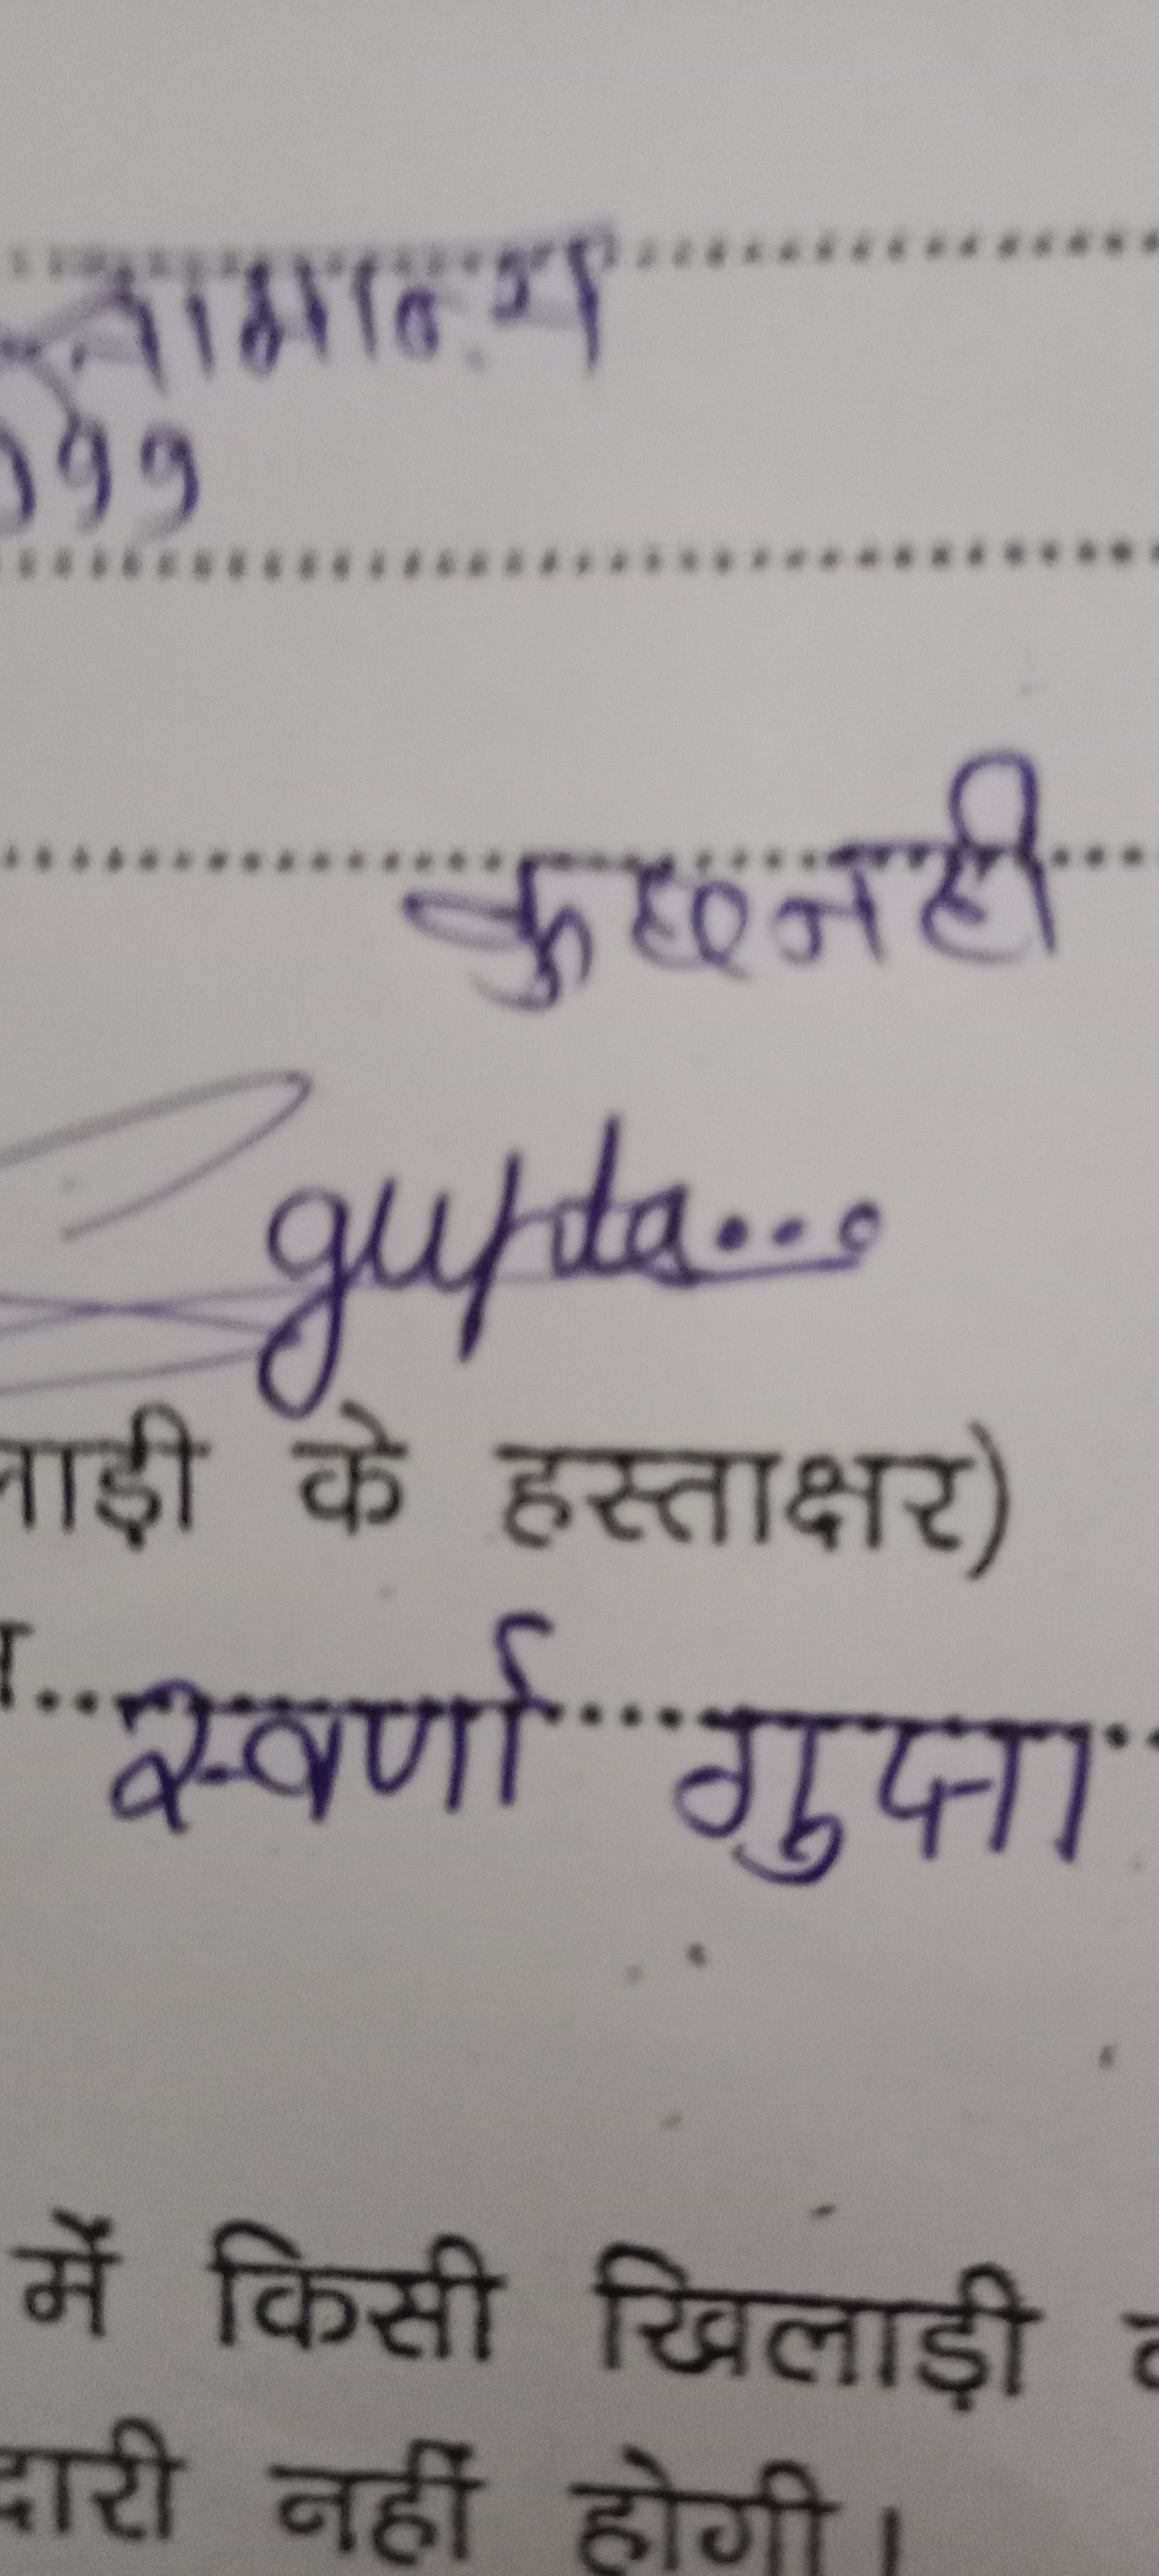 सामान्य
99
कुछ नही
gupta...
लाड़ी के हस्ताक्षर)
स्वर्णा गुप्ता
में किसी खिलाड़ी
दारी नहीं होगी।